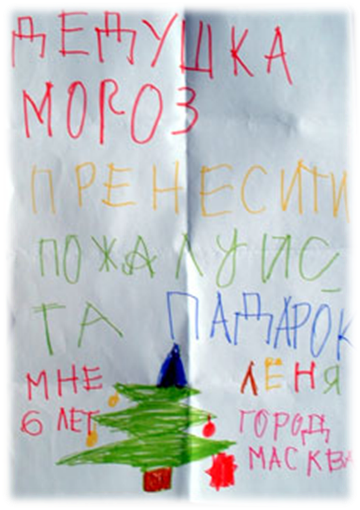 ДЕДУШКА
МОРОЗ
ПРЕНЕСИТИ
ПОЖАЛУИС
ТА ПАДАРОК
МНЕ ЛЕНЯ
6 ЛЕТ ГОРОД
МАСКВА